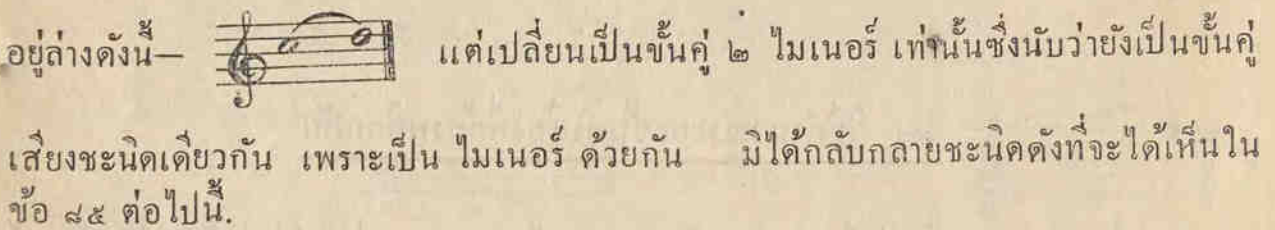 อยู่ล่างดังนี้— แต่เปลี่ยนเป็นขั้นคู่ ๒ ไมเนอร์ เท่านั้นซึ่งนับว่ายังเป็นขั้นคู่
เสียงชะนิดเดียวกัน เพราะเป็น ไมเนอร์ ด้วยกัน มิได้กลับกลายชะนิดดังที่จะได้เห็นใน
ข้อ ๘๕ ต่อไปนี้.